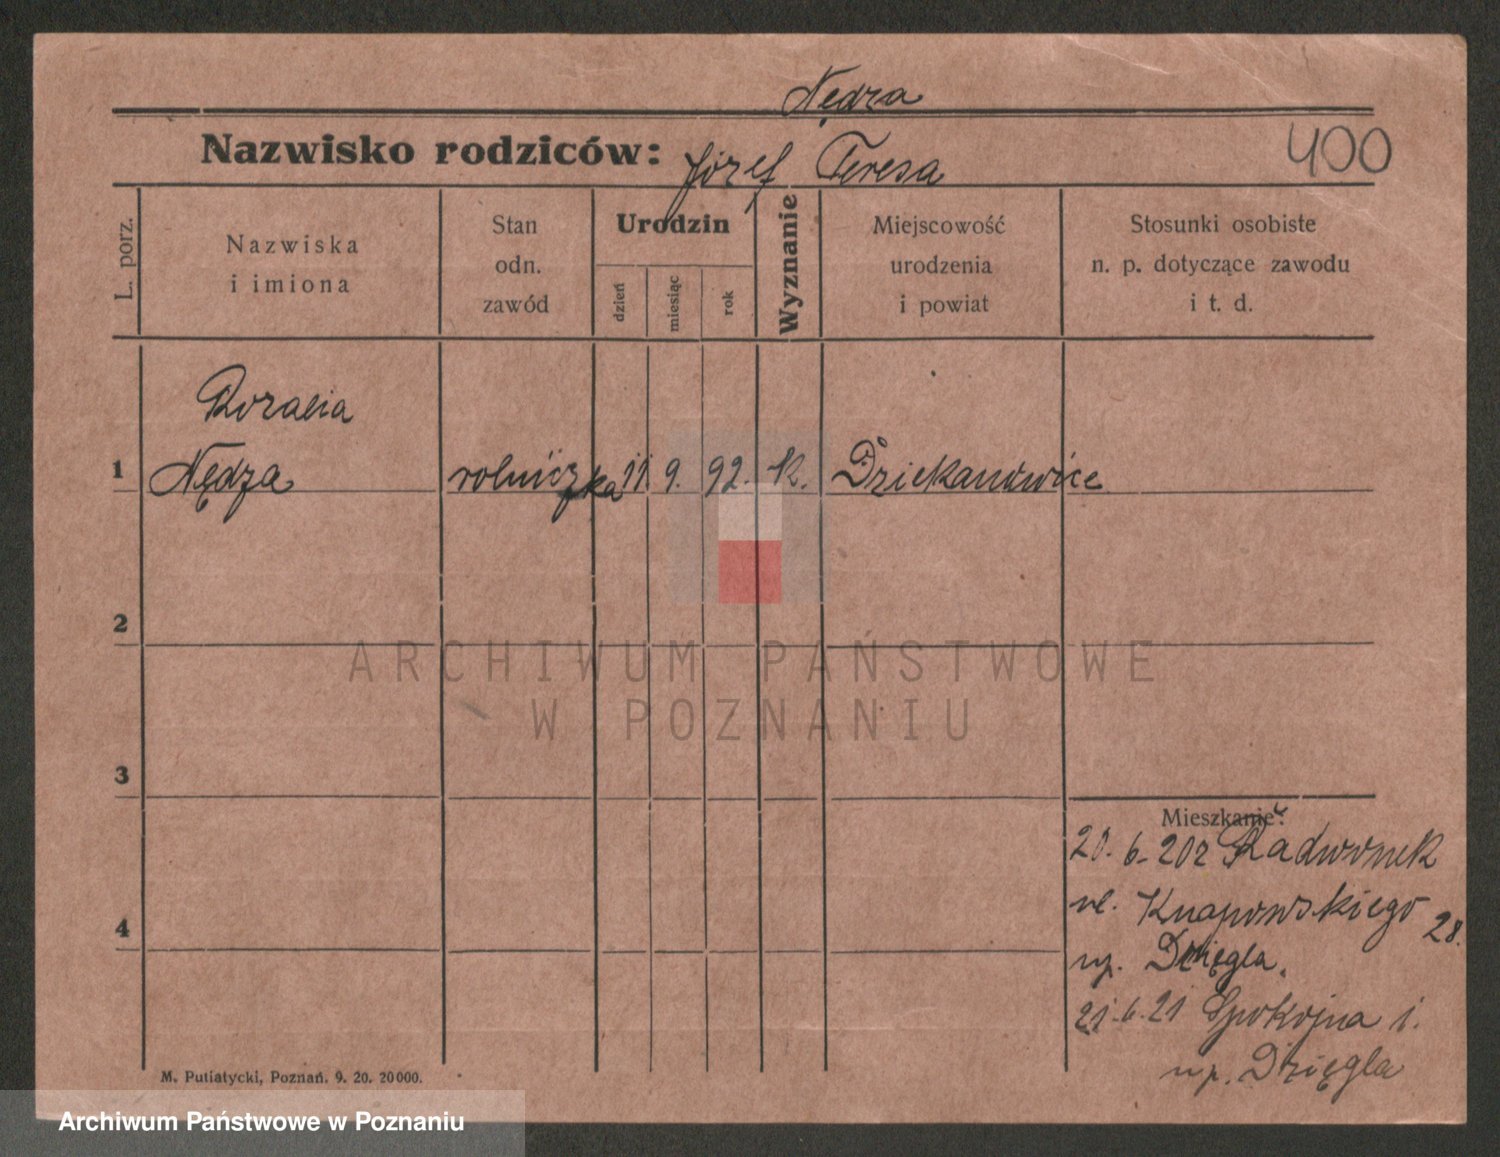 Nędza
Nazwisko rodziców: Józef Teresa
400
L. porz.
Nazwiska
i imiona
Stan
odn.
zawód
Urodzin
dzień
miesiąc
rok
Wyznanie
Miejscowość
urodzenia
i powiat
Stosunki osobiste
n. p. dotyczące zawodu
i t. d.
Rozalia
1 Nędza rolniczka 11. 9. 92. k. Dziekanowice
2
ARCHIWUM PAŃSTWOWE
W POZNANIU
3
Mieszkanie:
20. 6. 20 z Radwonek
ul. Knapowskiego 28.
np. Dzięgla.
4
21. 6. 21 Spokojna 1.
np. Dzięgla
M. Putiatycki, Poznań. 9. 20. 20000.
Archiwum Państwowe w Poznaniu